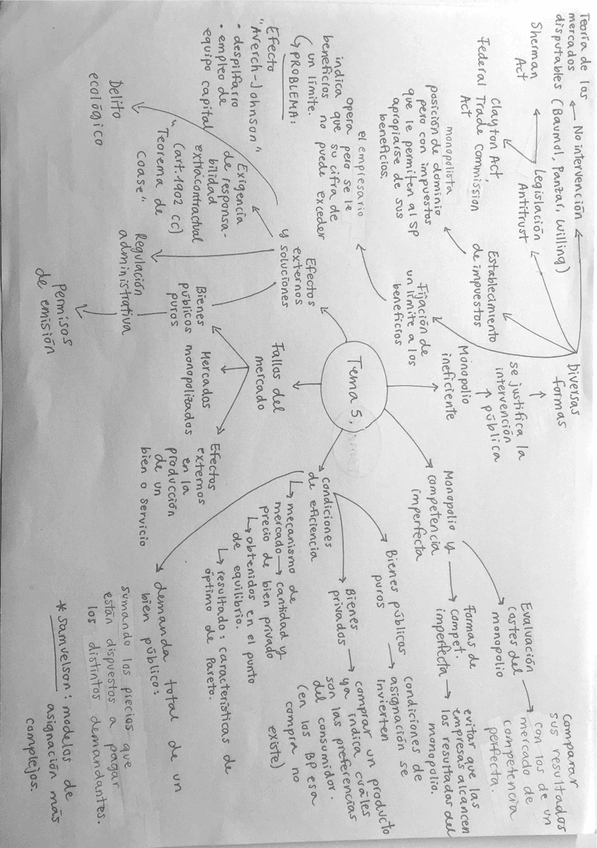 Teoría de los
mercados
disputables (Baumol, Panzar, Willing)
No intervención
Sherman
Act
Legislación
Antitrust
Clayton Act,
Federal Trade Commission
Act
Establecimiento
de impuestos
monopolista
posición de dominio
pero con impuestos
que le permiten al SP
apropiarse de sus
beneficios.
Fijación de
un límite a los
beneficios
el empresario
opera pero se le
indica que su cifra de
beneficios no puede exceder
un límite.
↳ PROBLEMA:
Efecto
"Averch-Johnson"
- despilfarro
- empleo de
equipo capital
Diversas
formas
se justifica la
intervención
pública
Monopolio
ineficiente
Tema 5.
Efectos
externos
y
soluciones
Delito
ecológico
Exigencia
de responsa-
bilidad
extracontractual
(art. 1902 CC)
"Teorema de
Coase"
Regulación
administrativa
permisos
de emisión
Fallos del
mercado
Bienes
públicos
puros
Mercados
monopolizados
Efectos
externos
en la
producción
de un
bien o servicio
Monopolio y
competencia
imperfecta
Evaluación
costes del
monopolio
Comparar
sus resultados
con los de un
mercado de
competencia
perfecta.
Formas de
compet.
imperfecta
evitar que las
empresas alcancen
los resultados del
monopolio.
condiciones
de eficiencia
Bienes públicos
puros
condiciones de
asignación se
invierten
Bienes
privados
comprar un producto
ya indica cuáles
son las preferencias
del consumidor.
(en los BP esa
compra no
existe)
↳ mecanismo de
mercado → cantidad y
precio de bien privado
↳ obtenidos en el punto
de equilibrio.
↳ resultado: características de
óptimo de Pareto.
demanda total de un
bien público:
sumando los precios que
están dispuestos a pagar
los distintos demandantes.
* Samuelson: modelos de
asignación más
complejos.